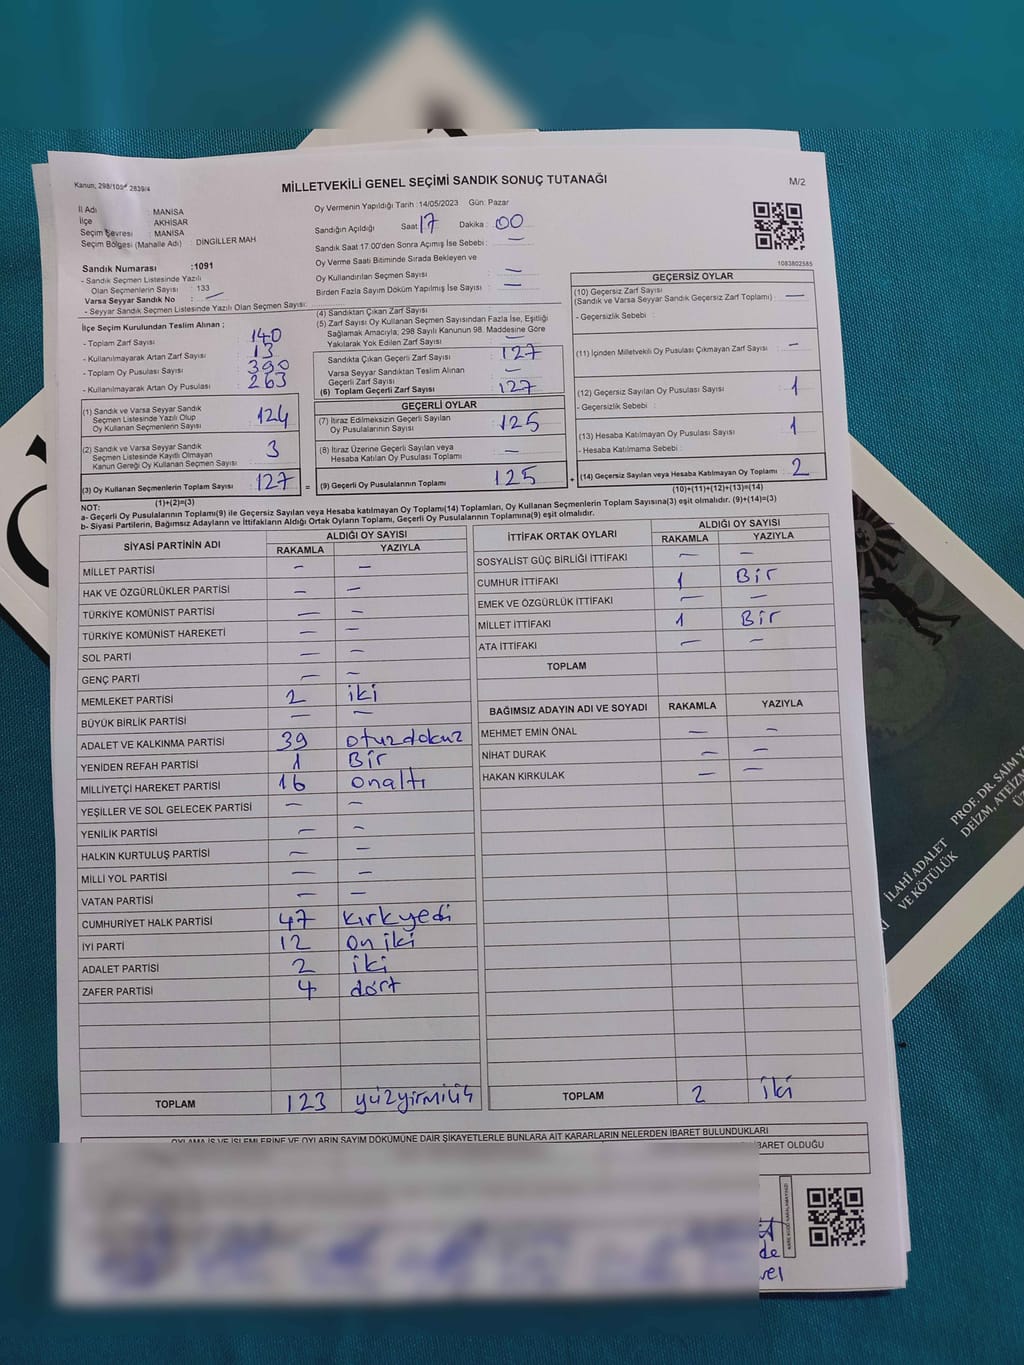 Kanun, 298/105 2839/4
MİLLETVEKİLİ GENEL SEÇİMİ SANDIK SONUÇ TUTANAĞI
M/2
İl Adı : MANİSA
İlçe : AKHİSAR
Seçim Çevresi : MANİSA
Seçim Bölgesi (Mahalle Adı) : DİNGİLLER MAH
Sandık Numarası :1091
- Sandık Seçmen Listesinde Yazılı
Olan Seçmenlerin Sayısı : 133
Varsa Seyyar Sandık No : —
- Seyyar Sandık Seçmen Listesinde Yazılı Olan Seçmen Sayısı:
Oy Vermenin Yapıldığı Tarih :14/05/2023 Gün: Pazar
Sandığın Açıldığı Saat : 17 Dakika : 00
Sandık Saat 17.00'den Sonra Açımış İse Sebebi : —
Oy Verme Saati Bitiminde Sırada Bekleyen ve
Oy Kullandırılan Seçmen Sayısı : —
Birden Fazla Sayım Döküm Yapılmış İse Sayısı : —
1083802585
İlçe Seçim Kurulundan Teslim Alınan ;
- Toplam Zarf Sayısı : 140
- Kullanılmayarak Artan Zarf Sayısı : 13
- Toplam Oy Pusulası Sayısı : 390
- Kullanılmayarak Artan Oy Pusulası : 263
(1) Sandık ve Varsa Seyyar Sandık
Seçmen Listesinde Yazılı Olup
Oy Kullanan Seçmenlerin Sayısı : 124
(2) Sandık ve Varsa Seyyar Sandık
Seçmen Listesinde Kayıtlı Olmayan
Kanun Gereği Oy Kullanan Seçmen Sayısı : 3
(3) Oy Kullanan Seçmenlerin Toplam Sayısı : 127 =
(1)+(2)=(3)
(4) Sandıktan Çıkan Zarf Sayısı
(5) Zarf Sayısı Oy Kullanan Seçmen Sayısından Fazla İse, Eşitliği
Sağlamak Amacıyla, 298 Sayılı Kanunun 98. Maddesine Göre
Yakılarak Yok Edilen Zarf Sayısı : —
Sandıkta Çıkan Geçerli Zarf Sayısı : 127
Varsa Seyyar Sandıktan Teslim Alınan
Geçerli Zarf Sayısı : —
(6) Toplam Geçerli Zarf Sayısı : 127
GEÇERLİ OYLAR
(7) İtiraz Edilmeksizin Geçerli Sayılan
Oy Pusulalarının Sayısı : 125
(8) İtiraz Üzerine Geçerli Sayılan veya
Hesaba Katılan Oy Pusulası Toplamı : —
(9) Geçerli Oy Pusulalarının Toplamı : 125 +
GEÇERSİZ OYLAR
(10) Geçersiz Zarf Sayısı
(Sandık ve Varsa Seyyar Sandık Geçersiz Zarf Toplamı) : —
- Geçersizlik Sebebi :
(11) İçinden Milletvekili Oy Pusulası Çıkmayan Zarf Sayısı : —
(12) Geçersiz Sayılan Oy Pusulası Sayısı : 1
- Geçersizlik Sebebi :
(13) Hesaba Katılmayan Oy Pusulası Sayısı : 1
- Hesaba Katılmama Sebebi :
(14) Geçersiz Sayılan veya Hesaba Katılmayan Oy Toplamı : 2
(10)+(11)+(12)+(13)=(14)
NOT:
a- Geçerli Oy Pusulalarının Toplamı(9) ile Geçersiz Sayılan veya Hesaba Katılmayan Oy Toplamı(14) Toplamları, Oy Kullanan Seçmenlerin Toplam Sayısına(3) eşit olmalıdır. (9)+(14)=(3)
b- Siyasi Partilerin, Bağımsız Adayların ve İttifakların Aldığı Ortak Oyların Toplamı, Geçerli Oy Pusulalarının Toplamına(9) eşit olmalıdır.
SİYASİ PARTİNİN ADI ALDIĞI OY SAYISI
RAKAMLA YAZIYLA
MİLLET PARTİSİ — —
HAK VE ÖZGÜRLÜKLER PARTİSİ — —
TÜRKİYE KOMÜNİST PARTİSİ — —
TÜRKİYE KOMÜNİST HAREKETİ — —
SOL PARTİ — —
GENÇ PARTİ — —
MEMLEKET PARTİSİ 2 iki
BÜYÜK BİRLİK PARTİSİ — —
ADALET VE KALKINMA PARTİSİ 39 otuzdokuz
YENİDEN REFAH PARTİSİ 1 Bir
MİLLİYETÇİ HAREKET PARTİSİ 16 onaltı
YEŞİLLER VE SOL GELECEK PARTİSİ — —
YENİLİK PARTİSİ — —
HALKIN KURTULUŞ PARTİSİ — —
MİLLİ YOL PARTİSİ — —
VATAN PARTİSİ — —
CUMHURİYET HALK PARTİSİ 47 kırkyedi
İYİ PARTİ 12 on iki
ADALET PARTİSİ 2 iki
ZAFER PARTİSİ 4 dört
TOPLAM 123 yüzyirmiüç
İTTİFAK ORTAK OYLARI ALDIĞI OY SAYISI
RAKAMLA YAZIYLA
SOSYALİST GÜÇ BİRLİĞİ İTTİFAKI — —
CUMHUR İTTİFAKI 1 Bir
EMEK VE ÖZGÜRLÜK İTTİFAKI — —
MİLLET İTTİFAKI 1 Bir
ATA İTTİFAKI — —
TOPLAM
BAĞIMSIZ ADAYIN ADI VE SOYADI RAKAMLA YAZIYLA
MEHMET EMİN ÖNAL — —
NİHAT DURAK — —
HAKAN KIRKULAK — —
TOPLAM 2 iki
OYLAMA İŞ VE İŞLEMLERİNE VE OYLARIN SAYIM DÖKÜMÜNE DAİR ŞİKAYETLERLE BUNLARA AİT KARARLARIN NELERDEN İBARET BULUNDUKLARI
İBARET OLDUĞU
İLAHİ ADALET
VE KÖTÜLÜK
PROF. DR. SAİM Y
DEİZM, ATEİZM